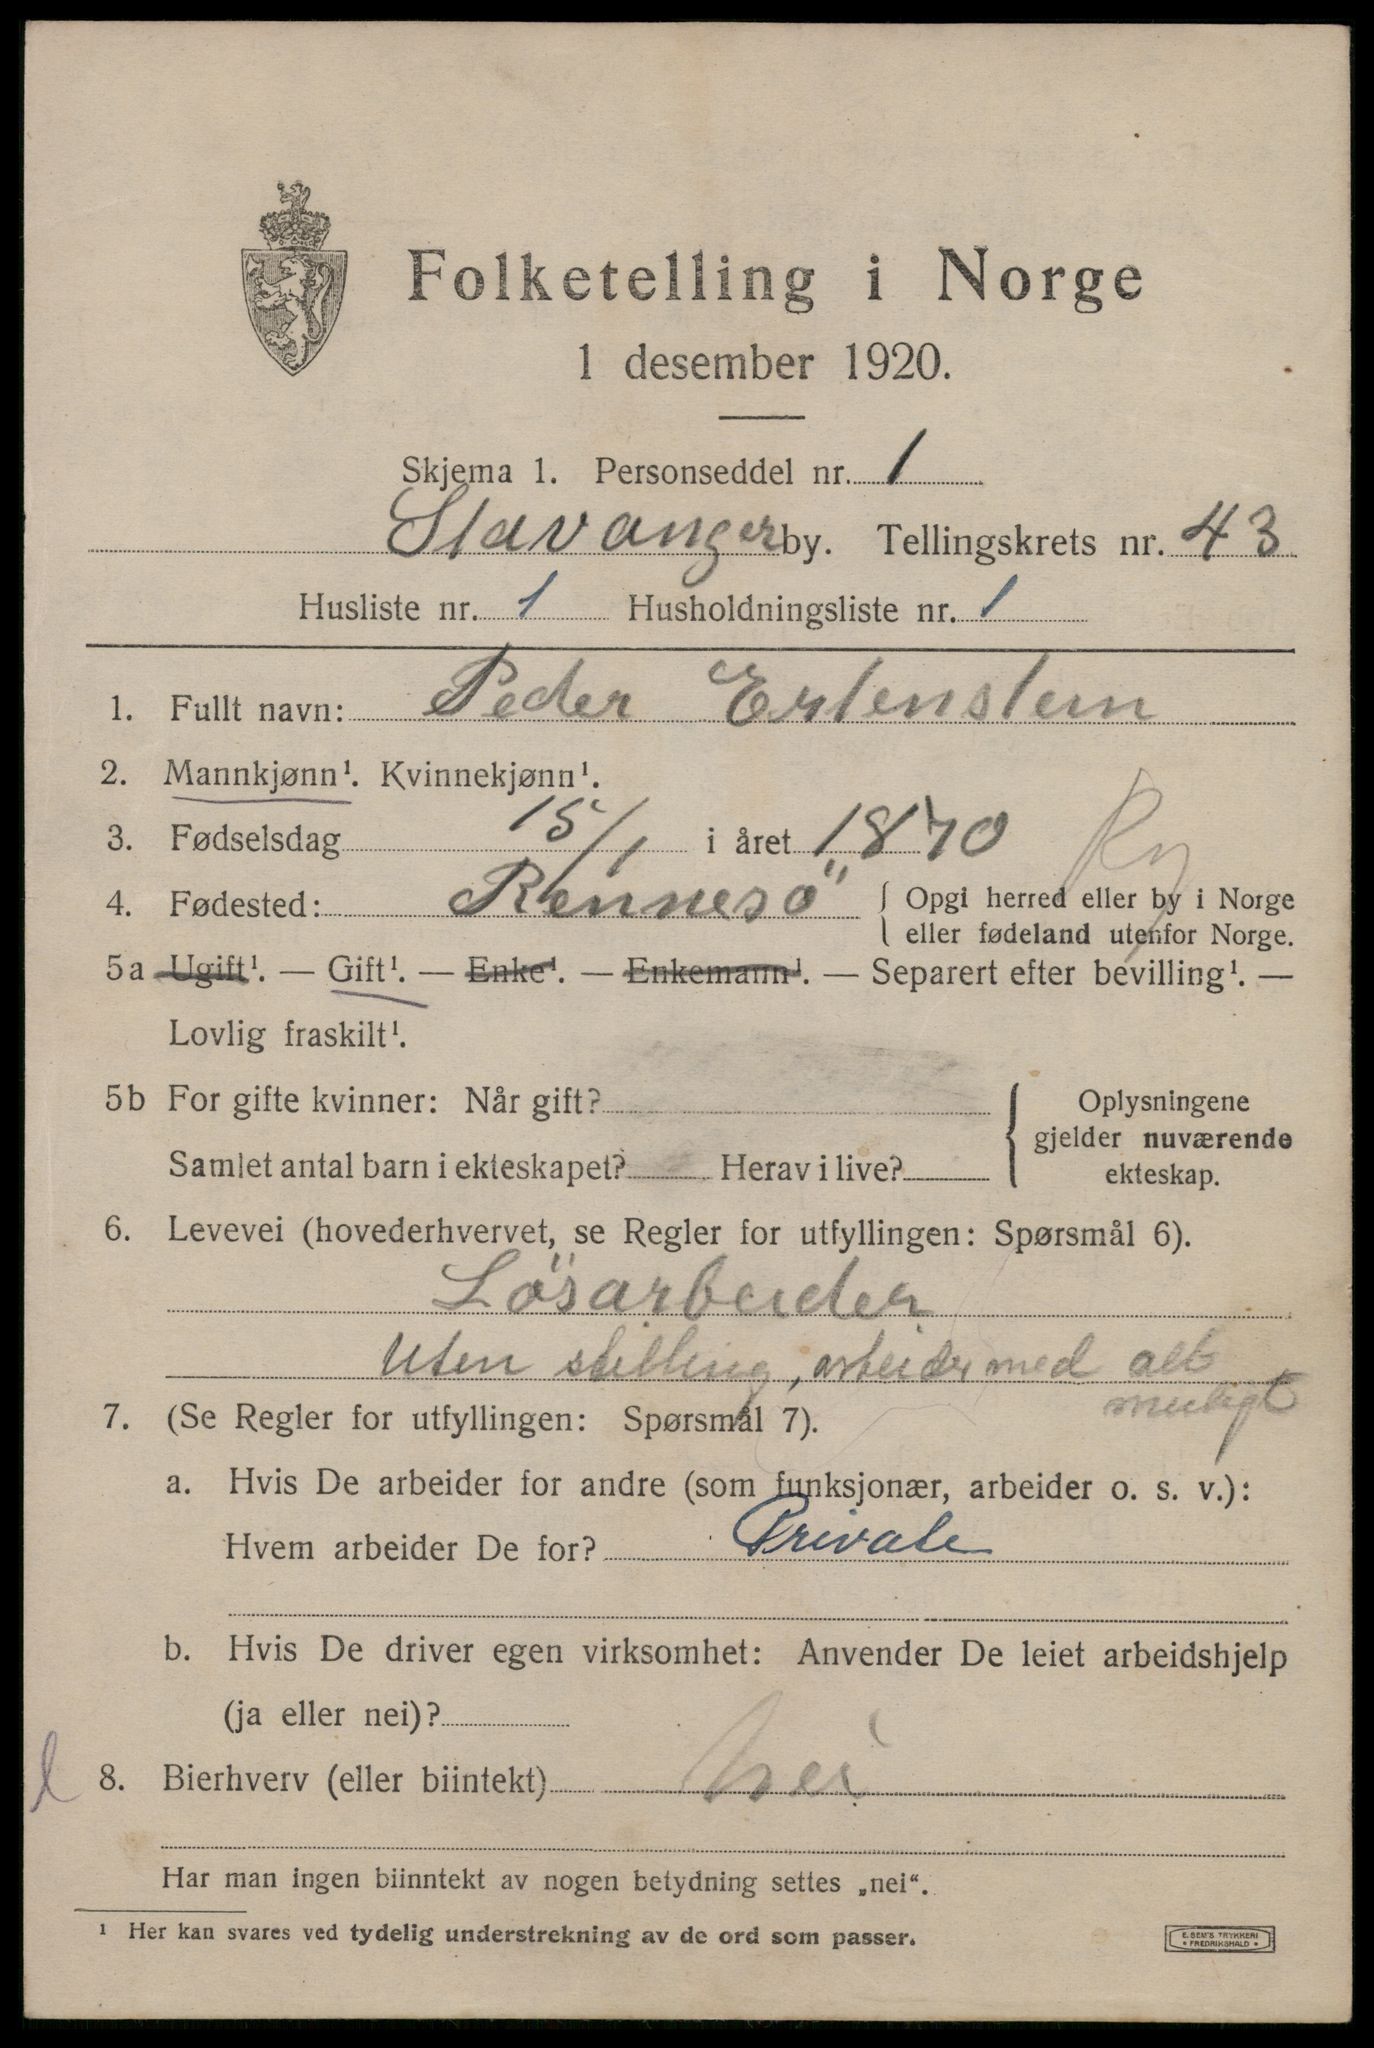 Folketelling i Norge
1 desember 1920.
Skjema 1. Personseddel nr. 1
Stavanger by. Tellingskrets nr. 43
Husliste nr. 1 Husholdningsliste nr. 1
1. Fullt navn: Peder Ertenstein
2. Mannkjønn¹. Kvinnekjønn¹.
3. Fødselsdag 15/1 i året 1870
4. Fødested: Rennesö { Opgi herred eller by i Norge
eller fødeland utenfor Norge.
5a Ugift¹. — Gift¹. — Enke¹. — Enkemann¹. — Separert efter bevilling¹. —
Lovlig fraskilt¹.
5b For gifte kvinner: Når gift?
Samlet antal barn i ekteskapet? Herav i live?
{ Oplysningene
gjelder nuværende
ekteskap.
6. Levevei (hovederhvervet, se Regler for utfyllingen: Spørsmål 6).
Lösarbeider
Uten stilling, arbeider med alt
muligt
7. (Se Regler for utfyllingen: Spørsmål 7).
a. Hvis De arbeider for andre (som funksjonær, arbeider o. s. v.):
Hvem arbeider De for? Private
b. Hvis De driver egen virksomhet: Anvender De leiet arbeidshjelp
(ja eller nei)?
8. Bierhverv (eller biintekt) Nei
Har man ingen biinntekt av nogen betydning settes „nei“.
¹ Her kan svares ved tydelig understrekning av de ord som passer.
E. SEM'S TRYKKERI
• FREDRIKSHALD •